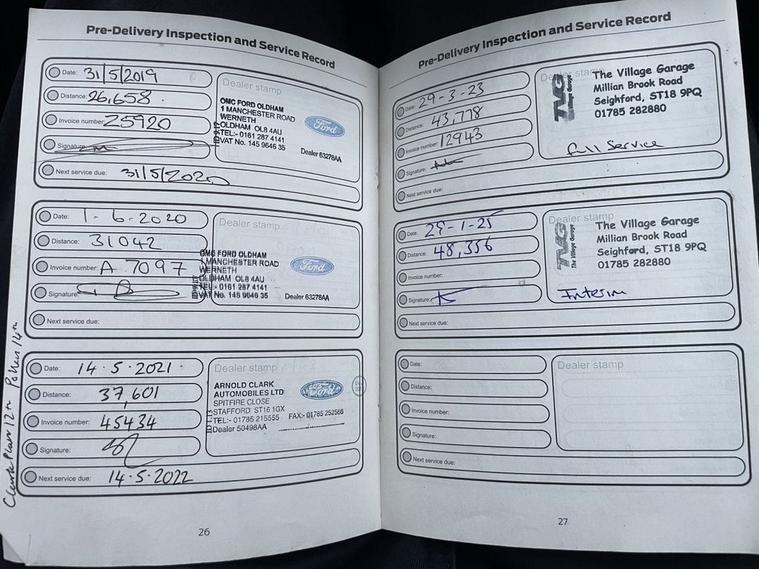 Pre-Delivery Inspection and Service Record
Date: 31/5/2019
Distance: 26,658.
Invoice number: 25920
Signature:
Next service due: 31/5/2020
Dealer stamp
OMC FORD OLDHAM
1 MANCHESTER ROAD
WERNETH
OLDHAM OL8 4AU
TEL:- 0161 287 4141
VAT No. 145 9646 35
Dealer 63278AA
Ford
Date: 1-6-2020
Distance: 31042
Invoice number: A 7097
Signature:
Next service due:
Dealer stamp
OMC FORD OLDHAM
1 MANCHESTER ROAD
WERNETH
OLDHAM OL8 4AU
TEL:- 0161 287 4141
VAT No. 145 9646 35
Dealer 63278AA
Ford
Date: 14.5.2021.
Distance: 37,601
Invoice number: 45434
Signature:
Next service due: 14.5.2022
Dealer stamp
ARNOLD CLARK
AUTOMOBILES LTD
SPITFIRE CLOSE
STAFFORD ST16 1GX
TEL:- 01785 215555 FAX:- 01785 252566
Dealer 50498AA
Ford
26
Pre-Delivery Inspection and Service Record
Date: 29-3-23
Distance: 43,778
Invoice number: 12943
Signature:
Next service due:
Dealer stamp
TVG
The Village Garage
The Village Garage
Millian Brook Road
Seighford, ST18 9PQ
01785 282880
full Service
Date: 29-1-25
Distance: 48,356
Invoice number:
Signature:
Next service due:
Dealer stamp
TVG
The Village Garage
The Village Garage
Millian Brook Road
Seighford, ST18 9PQ
01785 282880
Interim
Date:
Distance:
Invoice number:
Signature:
Next service due:
Dealer stamp
27